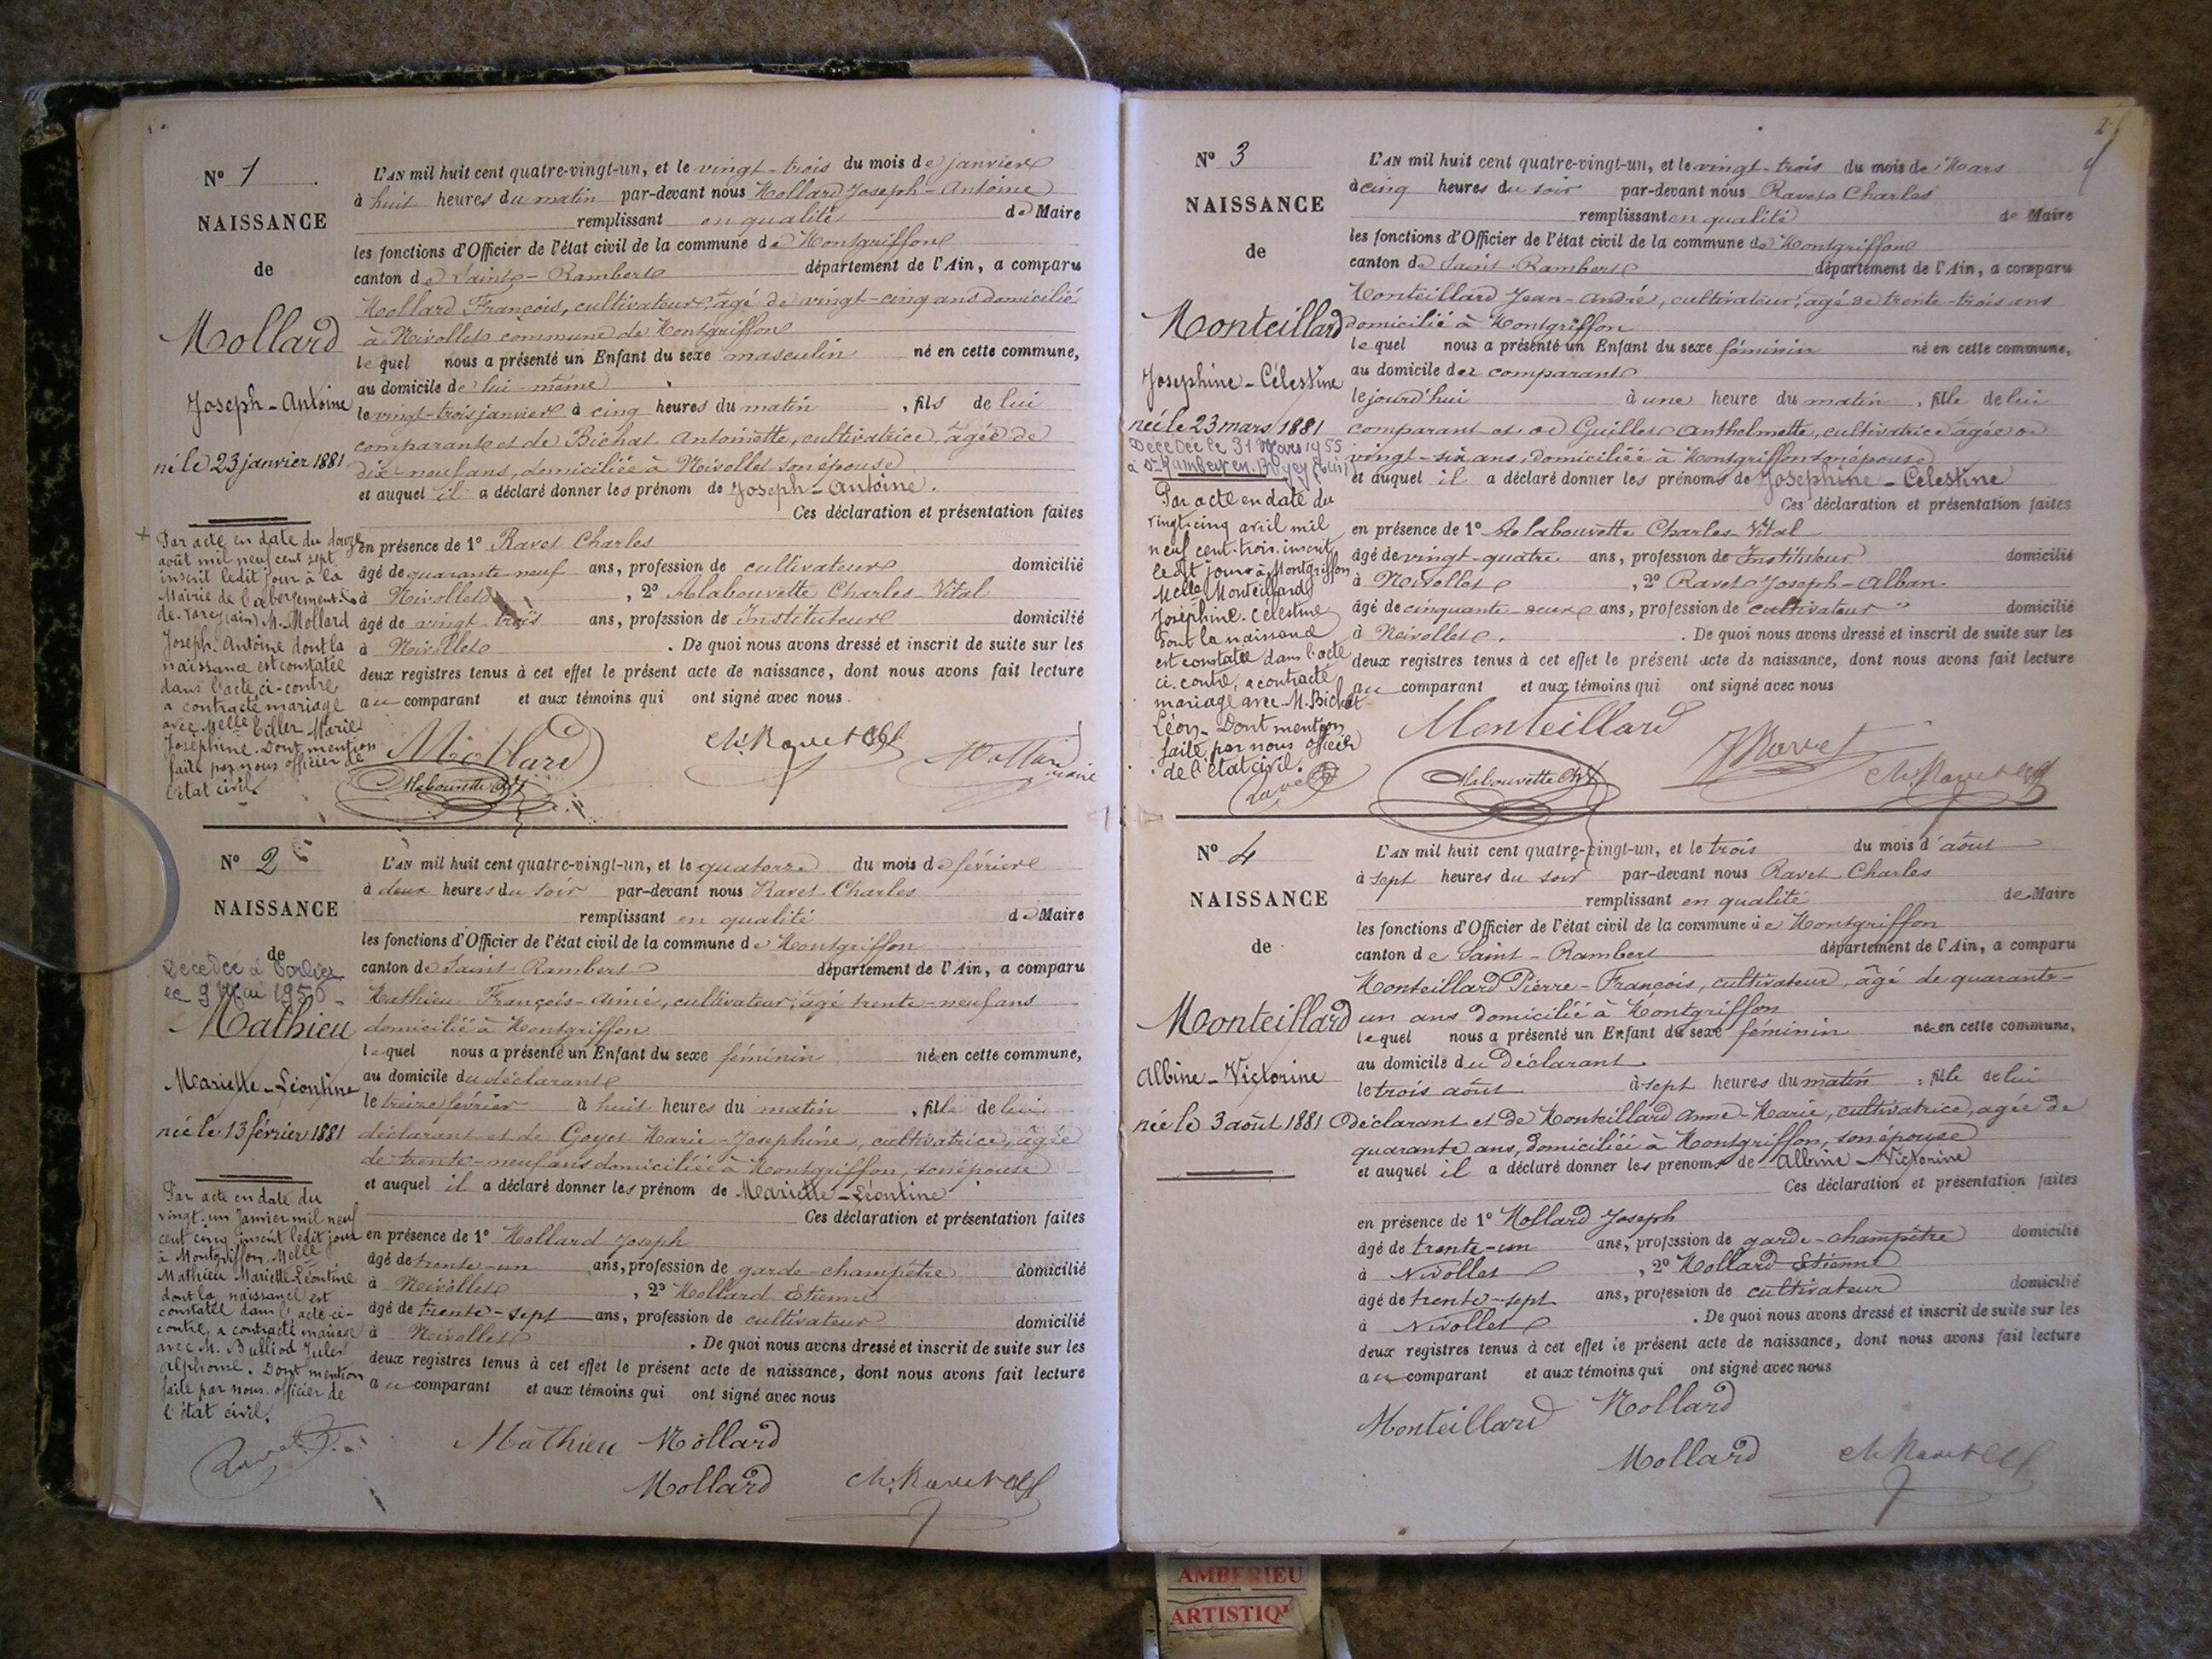 Nº 1
NAISSANCE
de
Mollard
Joseph-Antoine
né le 23 janvier 1881
Par acte en date du douze
août mil neuf cent sept
inscrit ledit jour à la
Mairie de l'abergement-de
de-Varey (ain) M. Mollard
Joseph-Antoine dont la
naissance est constatée
dans l'acte ci-contre
a contracté mariage
avec Melle Tiller Marie
Joséphine. Dont mention
faite par nous officier de
l'état civil.
L'AN mil huit cent quatre-vingt-un, et le vingt-trois du mois de janvier
à huit heures du matin par-devant nous Mollard Joseph-Antoine
remplissant en qualité de Maire
les fonctions d'Officier de l'état civil de la commune de Montgriffon
canton de Saint-Rambert département de l'Ain, a comparu
Mollard François, cultivateur, âgé de vingt-cinq ans domicilié
à Nivollet commune de Montgriffon
lequel nous a présenté un Enfant du sexe masculin né en cette commune,
au domicile de lui-même
le vingt-trois janvier à cinq heures du matin, fils de lui
comparant et de Bichat Antoinette, cultivatrice, âgée de
dix-neuf ans, domiciliée à Nivollet son épouse
et auquel il a déclaré donner les prénom de Joseph-Antoine.
Ces déclaration et présentation faites
en présence de 1º Ravet Charles
âgé de quarante neuf ans, profession de cultivateur domicilié
à Nivollet, 2º Alabouvette Charles-Vital
âgé de vingt-trois ans, profession de Instituteur domicilié
à Nivollet. De quoi nous avons dressé et inscrit de suite sur les
deux registres tenus à cet effet le présent acte de naissance, dont nous avons fait lecture
au comparant et aux témoins qui ont signé avec nous.
Mollard Ch. Ravet Mollard maire
Alabouvette Ch. V.
Nº 2
NAISSANCE
de
Décédée à
le 9 Mai 1956
Mathieu
Mariette-Léontine
née le 13 février 1881
Par acte en date du
vingt-un Janvier mil neuf
cent cinq inscrit ledit jour
à Montgriffon Melle
Mathieu Mariette Léontine
dont la naissance est
constatée dans l'acte ci-
contre, a contracté mariage
avec M. Bulliod Jules
Alphonse. Dont mention
faite par nous officier de
l'état civil.
L'AN mil huit cent quatre-vingt-un, et le quatorze du mois de février
à deux heures du soir par-devant nous Ravet Charles
remplissant en qualité de Maire
les fonctions d'Officier de l'état civil de la commune de Montgriffon
canton de Saint-Rambert département de l'Ain, a comparu
Mathieu François-Aimé, cultivateur, âgé trente-neuf ans
domicilié à Montgriffon
lequel nous a présenté un Enfant du sexe féminin né en cette commune,
au domicile du déclarant
le treize février à huit heures du matin, fille de lui
déclarant et de Goyet Marie-Josephine, cultivatrice, âgée
de trente-neuf ans domiciliée à Montgriffon, son épouse
et auquel il a déclaré donner les prénom de Mariette-Léontine
Ces déclaration et présentation faites
en présence de 1º Mollard Joseph
âgé de trente-un ans, profession de garde-champêtre domicilié
à Nivollet, 2º Mollard Etienne
âgé de trente-sept ans, profession de cultivateur domicilié
à Nivollet. De quoi nous avons dressé et inscrit de suite sur les
deux registres tenus à cet effet le présent acte de naissance, dont nous avons fait lecture
au comparant et aux témoins qui ont signé avec nous
Mathieu Mollard
Mollard Ch. Ravet
Nº 3
NAISSANCE
de
Monteillard
Josephine-Célestine
née le 23 mars 1881
Décédée le 31 Mars 1955
à St-Rambert en Bugey (Ain)
Par acte en date du
vingt-cinq avril mil
neuf cent-trois inscrit
ledit jour à Montgriffon
Melle Monteillard
Joséphine-Célestine
dont la naissance
est constatée dans l'acte
ci-contre, a contracté
mariage avec M. Bichat
Léon. Dont mention
faite par nous officier
de l'état civil.
Ravet
L'AN mil huit cent quatre-vingt-un, et le vingt-trois du mois de Mars
à cinq heures du soir par-devant nous Ravet Charles
remplissant en qualité de Maire
les fonctions d'Officier de l'état civil de la commune de Montgriffon
canton de Saint-Rambert département de l'Ain, a comparu
Monteillard Jean-André, cultivateur, âgé de trente-trois ans
domicilié à Montgriffon
lequel nous a présenté un Enfant du sexe féminin né en cette commune,
au domicile de comparant
le jourd'hui à une heure du matin, fille de lui
comparant et de Guillet Anthelmette, cultivatrice âgée de
vingt-six ans, domiciliée à Montgriffon son épouse
et auquel il a déclaré donner les prénoms de Josephine-Celestine
Ces déclaration et présentation faites
en présence de 1º Alabouvette Charles-Vital
âgé de vingt-quatre ans, profession de Instituteur domicilié
à Nivollet, 2º Ravet Joseph-Alban
âgé de cinquante-deux ans, profession de cultivateur domicilié
à Nivollet. De quoi nous avons dressé et inscrit de suite sur les
deux registres tenus à cet effet le présent acte de naissance, dont nous avons fait lecture
au comparant et aux témoins qui ont signé avec nous
Monteillard
Alabouvette Ch. V. Ravet Ch. Ravet
Nº 4
NAISSANCE
de
Monteillard
Albine-Victorine
née le 3 août 1881
L'AN mil huit cent quatre-vingt-un, et le trois du mois d'août
à sept heures du soir par-devant nous Ravet Charles
remplissant en qualité de Maire
les fonctions d'Officier de l'état civil de la commune de Montgriffon
canton de Saint-Rambert département de l'Ain, a comparu
Monteillard Pierre-François, cultivateur, âgé de quarante-
un ans domicilié à Montgriffon
lequel nous a présenté un Enfant du sexe féminin né en cette commune,
au domicile du Déclarant
le trois août à sept heures du matin, fille de lui
déclarant et de Monteillard Anne-Marie, cultivatrice, agée de
quarante ans, domiciliée à Montgriffon, son épouse
et auquel il a déclaré donner les prénoms de Albine-Victorine
Ces déclaration et présentation faites
en présence de 1º Mollard Joseph
âgé de trente-un ans, profession de garde-champêtre domicilié
à Nivollet, 2º Mollard Etienne
âgé de trente-sept ans, profession de cultivateur domicilié
à Nivollet. De quoi nous avons dressé et inscrit de suite sur les
deux registres tenus à cet effet le présent acte de naissance, dont nous avons fait lecture
au comparant et aux témoins qui ont signé avec nous
Monteillard Mollard
Mollard Ch. Ravet
AMBERIEU
ARTISTIQ